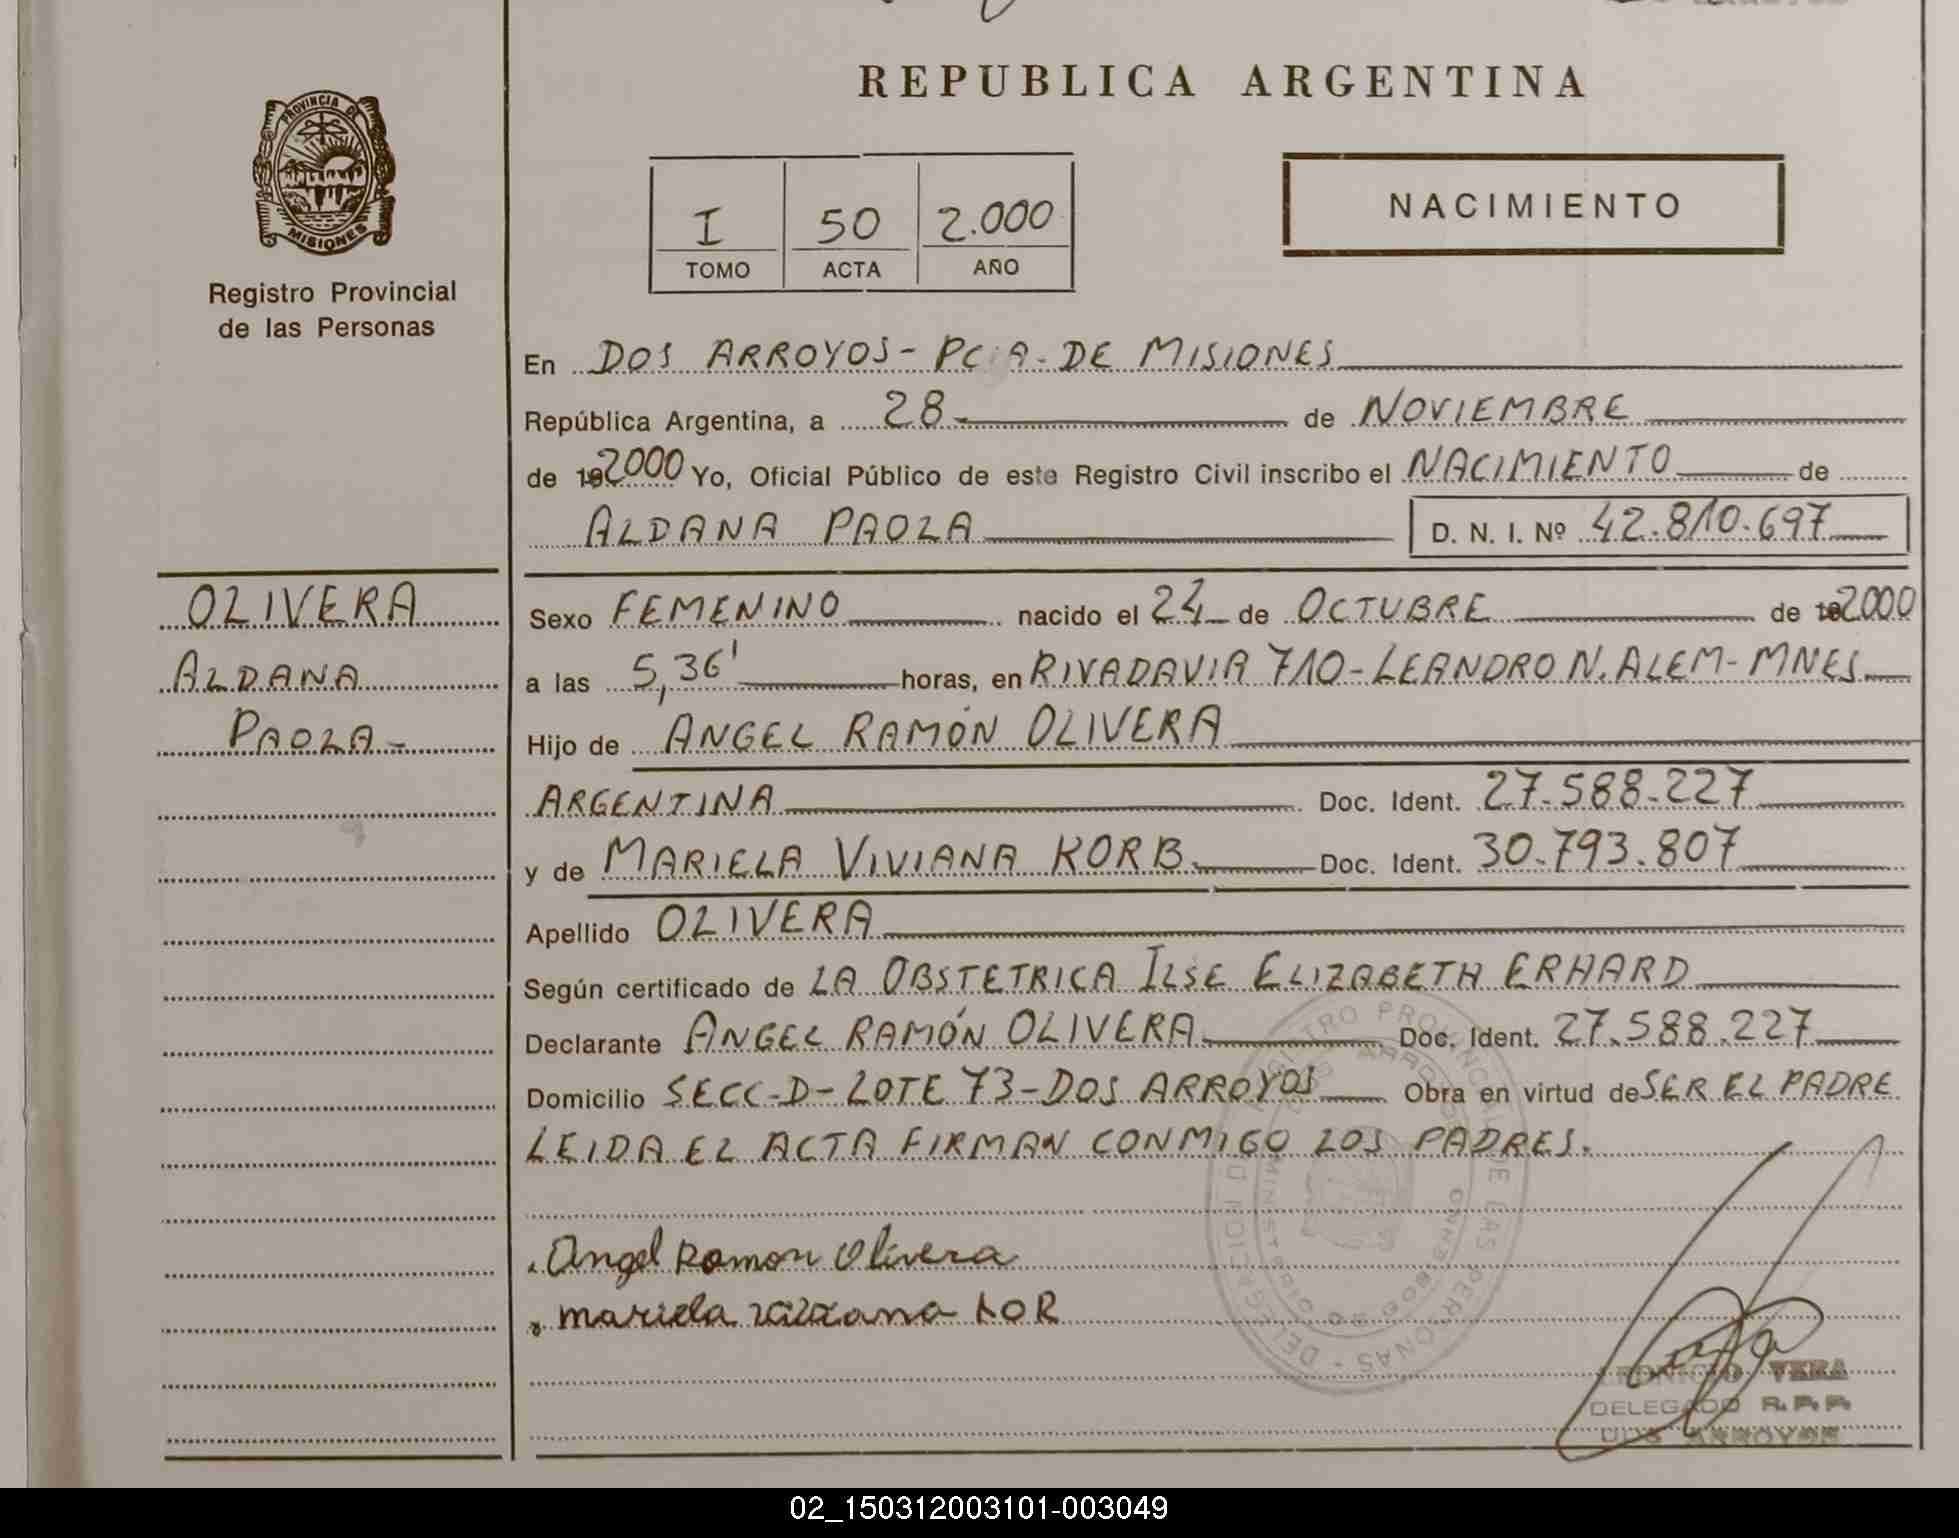 REPUBLICA ARGENTINA
PROVINCIA DE
MISIONES
Registro Provincial
de las Personas
I 50 2.000
TOMO ACTA AÑO
NACIMIENTO
En DOS ARROYOS - PCIA. DE MISIONES
República Argentina, a 28- de NOVIEMBRE
de 192000 Yo, Oficial Público de este Registro Civil inscribo el NACIMIENTO de
ALDANA PAOLA D. N. I. Nº 42.810.697
OLIVERA
ALDANA
PAOLA-
Sexo FEMENINO nacido el 24 de OCTUBRE de 192000
a las 5,36' horas, en RIVADAVIA 710-LEANDRO N. ALEM-MNES
Hijo de ANGEL RAMÓN OLIVERA
ARGENTINA Doc. Ident. 27.588.227
y de MARIELA VIVIANA KORB. Doc. Ident. 30.793.807
Apellido OLIVERA
Según certificado de LA OBSTETRICA ILSE ELIZABETH ERHARD
Declarante ANGEL RAMÓN OLIVERA Doc. Ident. 27.588.227
Domicilio SECC-D-LOTE 73-DOS ARROYOS Obra en virtud de SER EL PADRE
LEIDA EL ACTA FIRMAN CONMIGO LOS PADRES.
Angel Ramon Olivera
mariela viviana KOR
REGISTRO PROVINCIAL DE LAS PERSONAS - DELEGACION
DOS ARROYOS
VERA
DELEGADO R.P.P.
DOS ARROYOS
02_150312003101-003049